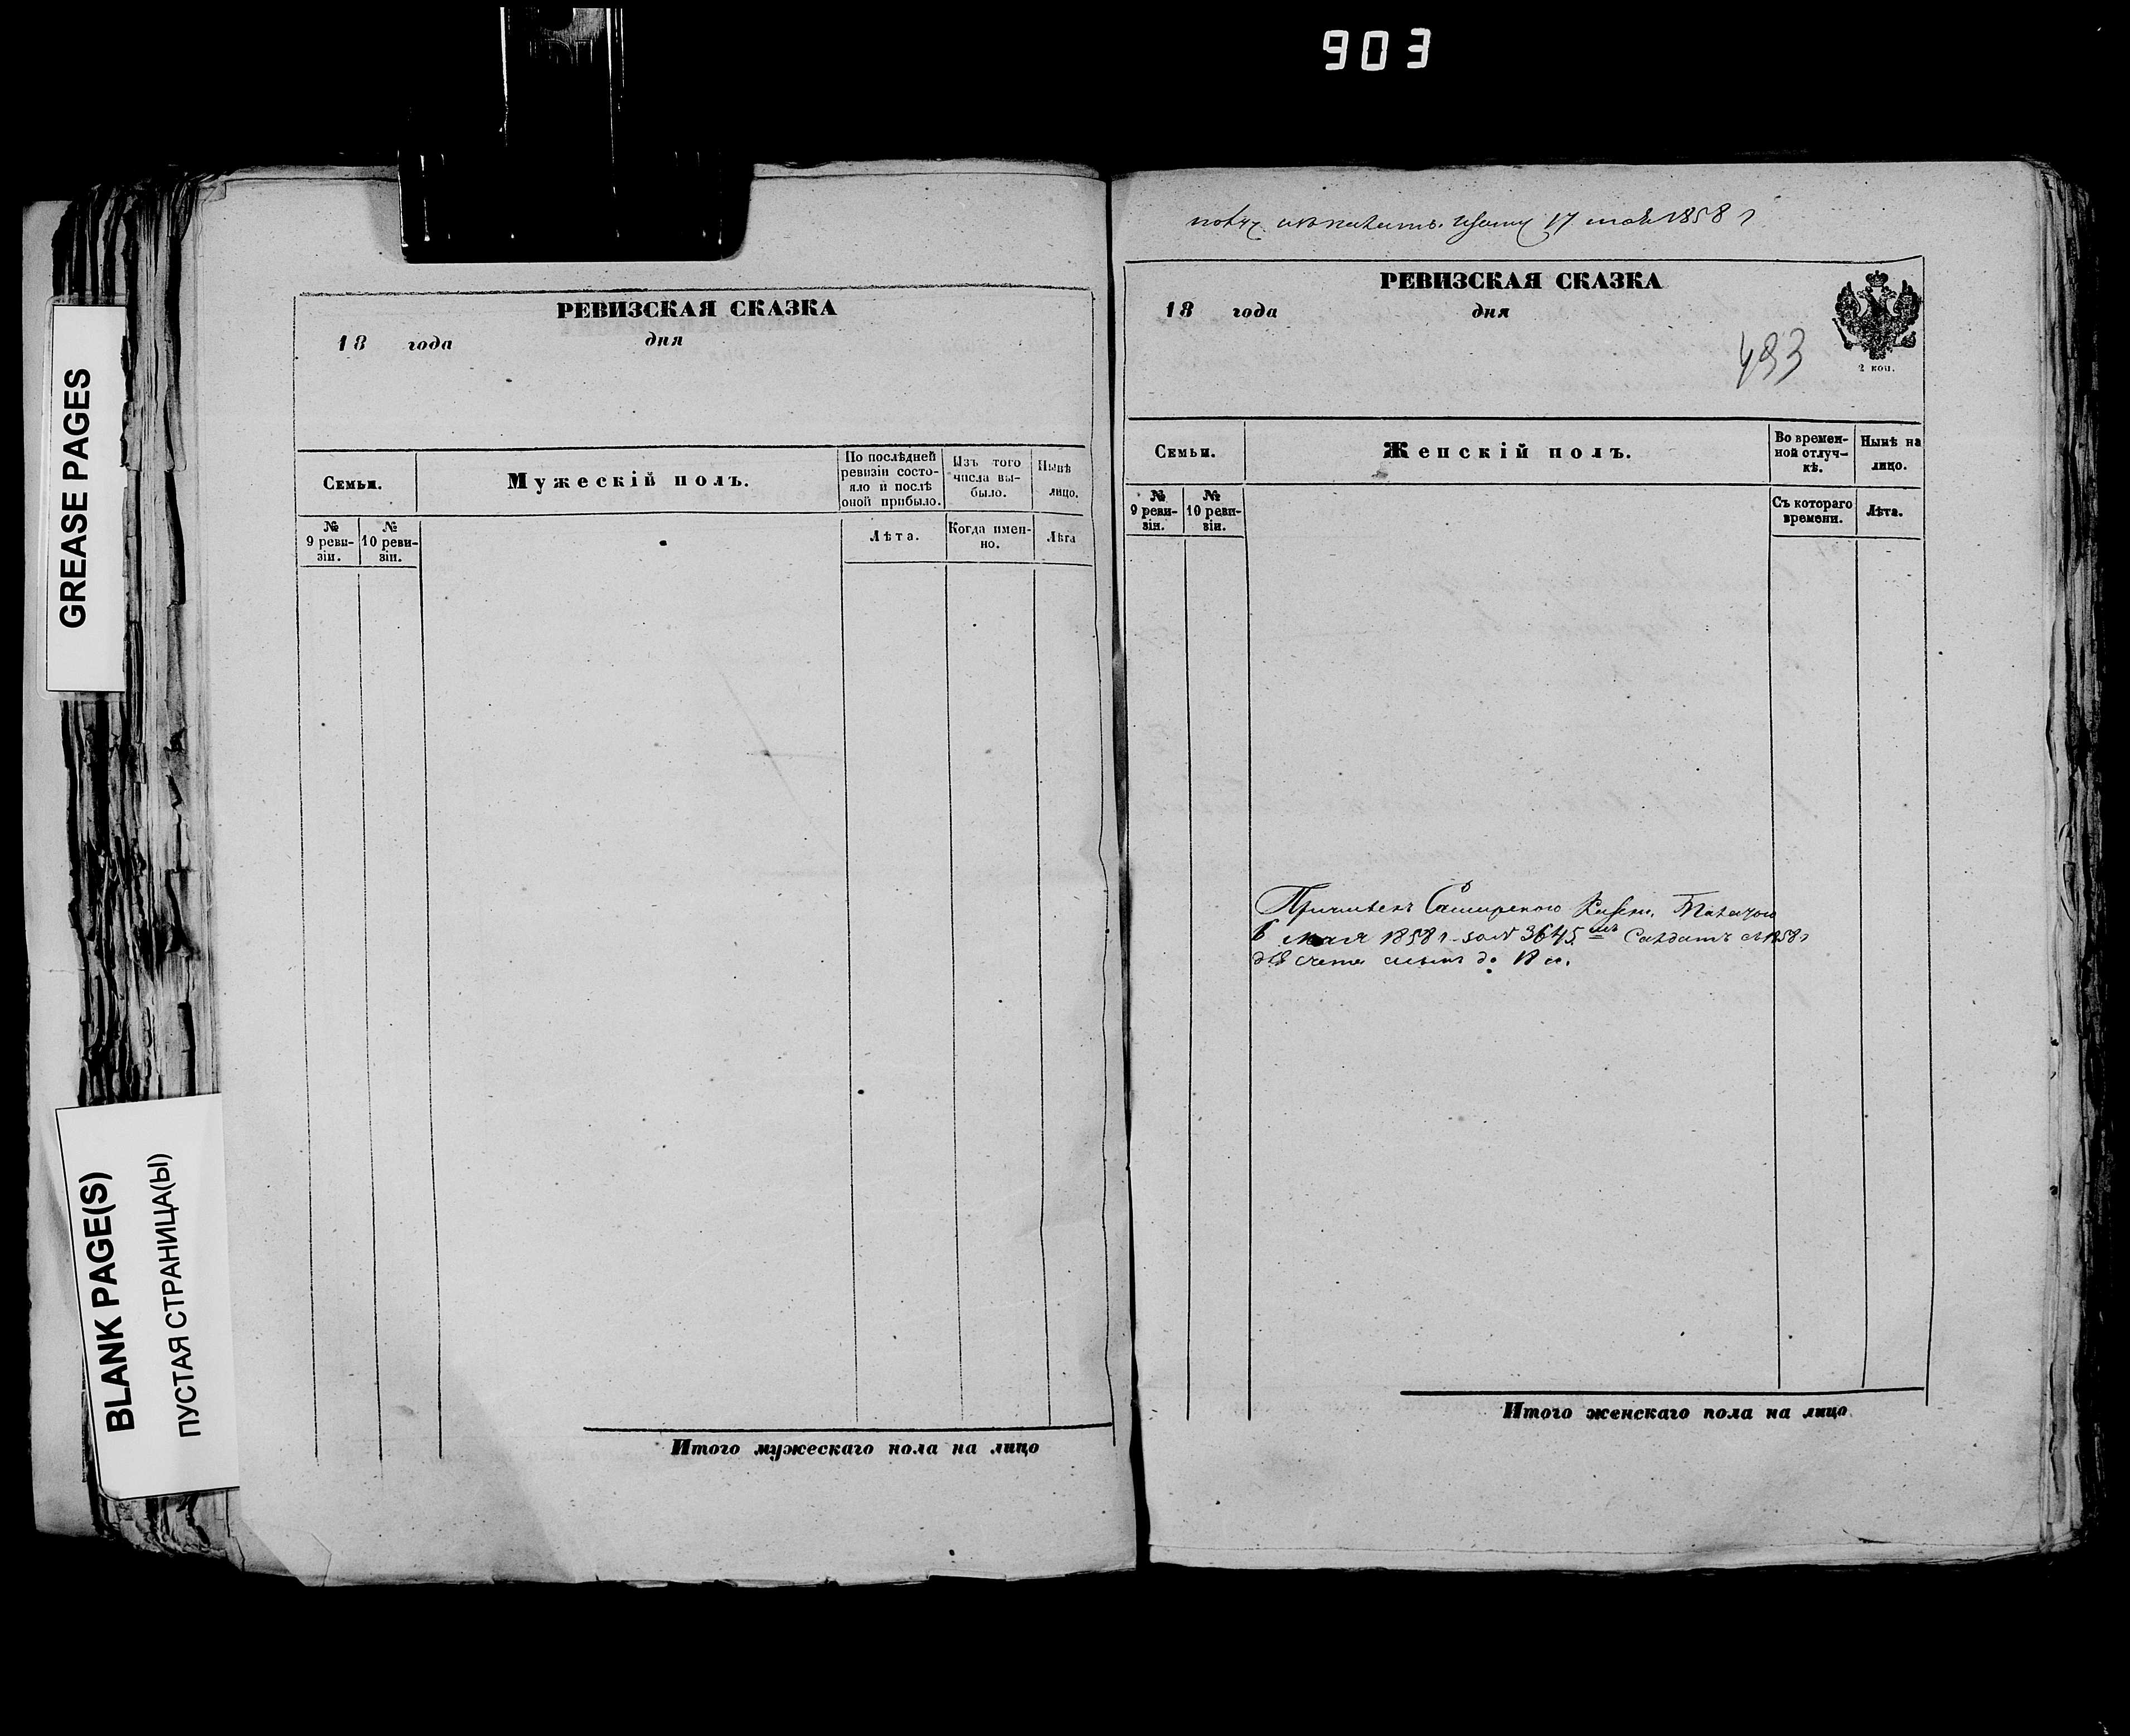 903
GREASE PAGES
BLANK PAGE(S)
ПУСТАЯ СТРАНИЦА(Ы)
РЕВИЗСКАЯ СКАЗКА
18 года дня
Семьи.
Мужескій полъ.
По послѣдней
ревизіи состо-
яло и послѣ
оной прибыло.
Изъ того
числа вы-
было.
Нынѣ
лицо.
№
9 реви-
зіи.
№
10 реви-
зіи.
Лѣта.
Когда имен-
но.
Лѣта
Итого мужескаго пола на лицо
17 1858 г
РЕВИЗСКАЯ СКАЗКА
18 года дня
2 коп.
493
Семьи.
Женскій полъ.
Во времен-
ной отлуч-
кѣ.
Нынѣ на
лицо.
№
9 реви-
зіи.
№
10 реви-
зіи.
Съ котораго
времени.
Лѣта.
6 мая 1858 г за № 3645 1858 г
Итого женскаго пола на лицо